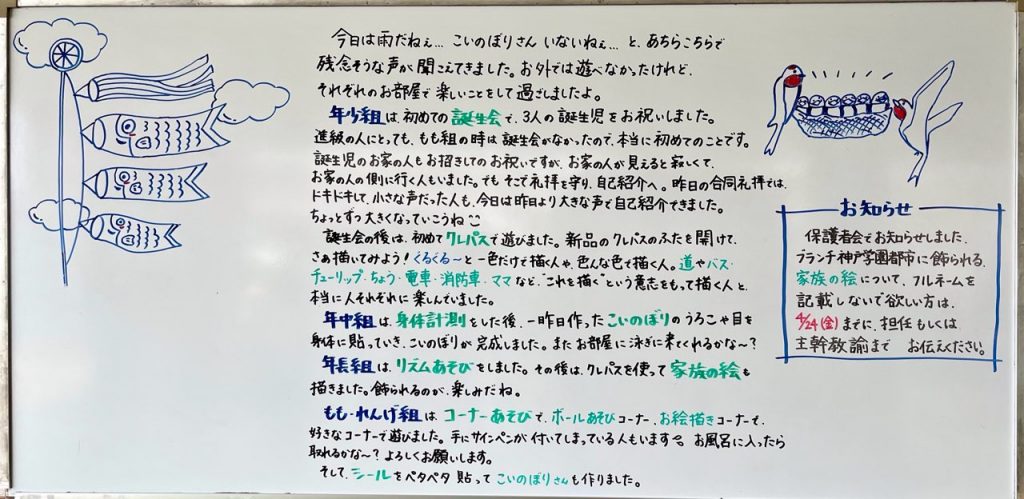 今日は雨だねぇ… こいのぼりさん いないねぇ… と、あちらこちらで
残念そうな声が聞こえてきました。お外では遊べなかったけれど、
それぞれのお部屋で楽しいことをして過ごしましたよ。
年少組は、初めての誕生会で、3人の誕生児をお祝いしました。
進級の人にとっても、もも組の時は誕生会がなかったので、本当に初めてのことです。
誕生児のお家の人もお招きしてのお祝いですが、お家の人が見えると寂しくて、
お家の人の側に行く人もいました。でも そこで礼拝を守り、自己紹介へ。昨日の合同礼拝では、
ドキドキして、小さな声だった人も、今日は昨日より大きな声で自己紹介できました。
ちょっとずつ大きくなっていこうね
誕生会の後は、初めてクレパスで遊びました。新品のクレパスのふたを開けて、
さぁ描いてみよう！くるぐる～と一色だけで描く人や、色んな色で描く人。道やバス・
チューリップ・ちょう・電車・消防車・ママなど、"これを描く"という意志をもって描く人と、
本当に人それぞれに楽しんでいました。
年中組は、身体計測をした後、一昨日作ったこいのぼりのうろこや目を
身体に貼っていき、こいのぼりが完成しました。またお部屋に泳ぎに来てくれるかな～？
年長組は、リズムあそびをしました。その後は、クレパスを使って家族の絵を
描きました。飾られるのが、楽しみだね。
もも・れんげ組は、コーナーあそびで、ボールあそびコーナー、お絵描きコーナーで、
好きなコーナーで遊びました。手にサインペンが付いてしまっている人もいます お風呂に入ったら
取れるかな～？よろしくお願いします。
そして、シールをペタペタ貼ってこいのぼりさんも作りました。
お知らせ
保護者会でお知らせしました、
ブランチ神戸学園都市に飾られる、
家族の絵について、フルネームを
記載しないで欲しい方は、
4/24(金)までに、担任もしくは
主幹教諭まで お伝えください。